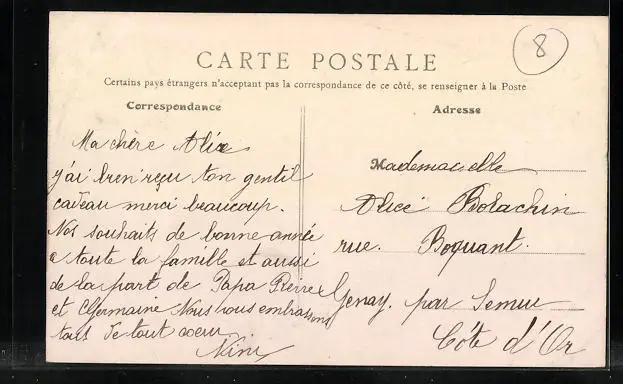 8
CARTE POSTALE
Certains pays étrangers n'acceptant pas la correspondance de ce côté, se renseigner à la Poste
Correspondance
Ma chère Alice
j'ai bien reçu ton gentil
cadeau merci beaucoup.
Nos souhaits de bonne année
a toute la famille et aussi
de la part de Papa Pierre
et Germaine Nous vous embrassons
tous de tout coeur
Nini
Adresse
Mademoiselle
Alice Bolachin
rue. Boquant.
Genay. par Semur
Côte d'Or